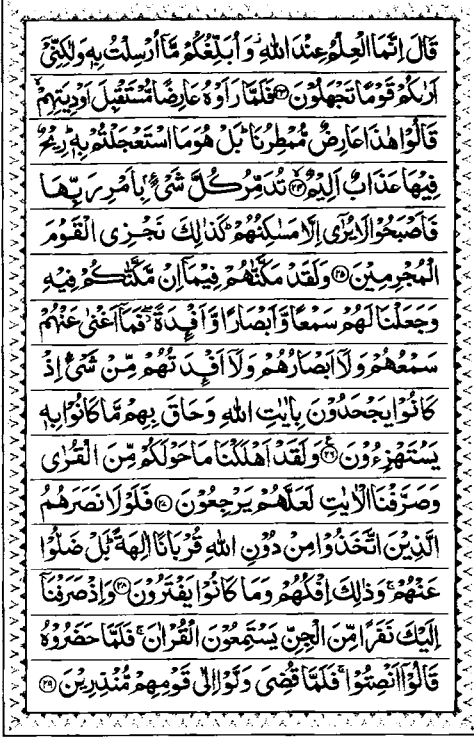 قَالَ اِنَّمَا الْعِلْمُ عِنْدَ اللّٰهِ ۖ وَ اُبَلِّغُكُمْ مَّاۤ اُرْسِلْتُ بِهٖ وَلٰكِنِّیْۤ
اَرٰىكُمْ قَوْمًا تَجْهَلُوْنَ ﴿۲۳﴾ فَلَمَّا رَاَوْهُ عَارِضًا مُّسْتَقْبِلَ اَوْدِیَتِهِمْ ۙ
قَالُوْا هٰذَا عَارِضٌ مُّمْطِرُنَا ؕ بَلْ هُوَ مَا اسْتَعْجَلْتُمْ بِهٖ ؕ رِیْحٌ
فِیْهَا عَذَابٌ اَلِیْمٌ ﴿۲۴﴾ تُدَمِّرُ كُلَّ شَیْءٍۭ بِاَمْرِ رَبِّهَا
فَاَصْبَحُوْا لَا یُرٰۤی اِلَّا مَسٰكِنُهُمْ ؕ كَذٰلِكَ نَجْزِی الْقَوْمَ
الْمُجْرِمِیْنَ ﴿۲۵﴾ وَ لَقَدْ مَكَّنّٰهُمْ فِیْمَاۤ اِنْ مَّكَّنّٰكُمْ فِیْهِ
وَ جَعَلْنَا لَهُمْ سَمْعًا وَّ اَبْصَارًا وَّ اَفْـِٕدَةً ۖ فَمَاۤ اَغْنٰی عَنْهُمْ
سَمْعُهُمْ وَ لَاۤ اَبْصَارُهُمْ وَ لَاۤ اَفْـِٕدَتُهُمْ مِّنْ شَیْءٍ اِذْ
كَانُوْا یَجْحَدُوْنَ بِاٰیٰتِ اللّٰهِ وَ حَاقَ بِهِمْ مَّا كَانُوْا بِهٖ
یَسْتَهْزِءُوْنَ ﴿۲۶﴾ وَ لَقَدْ اَهْلَكْنَا مَا حَوْلَكُمْ مِّنَ الْقُرٰی
وَ صَرَّفْنَا الْاٰیٰتِ لَعَلَّهُمْ یَرْجِعُوْنَ ﴿۲۷﴾ فَلَوْ لَا نَصَرَهُمُ
الَّذِیْنَ اتَّخَذُوْا مِنْ دُوْنِ اللّٰهِ قُرْبَانًا اٰلِهَةً ؕ بَلْ ضَلُّوْا
عَنْهُمْ ۚ وَ ذٰلِكَ اِفْكُهُمْ وَ مَا كَانُوْا یَفْتَرُوْنَ ﴿۲۸﴾ وَ اِذْ صَرَفْنَاۤ
اِلَیْكَ نَفَرًا مِّنَ الْجِنِّ یَسْتَمِعُوْنَ الْقُرْاٰنَ ۚ فَلَمَّا حَضَرُوْهُ
قَالُوْۤا اَنْصِتُوْا ۚ فَلَمَّا قُضِیَ وَلَّوْا اِلٰی قَوْمِهِمْ مُّنْذِرِیْنَ ﴿۲۹﴾